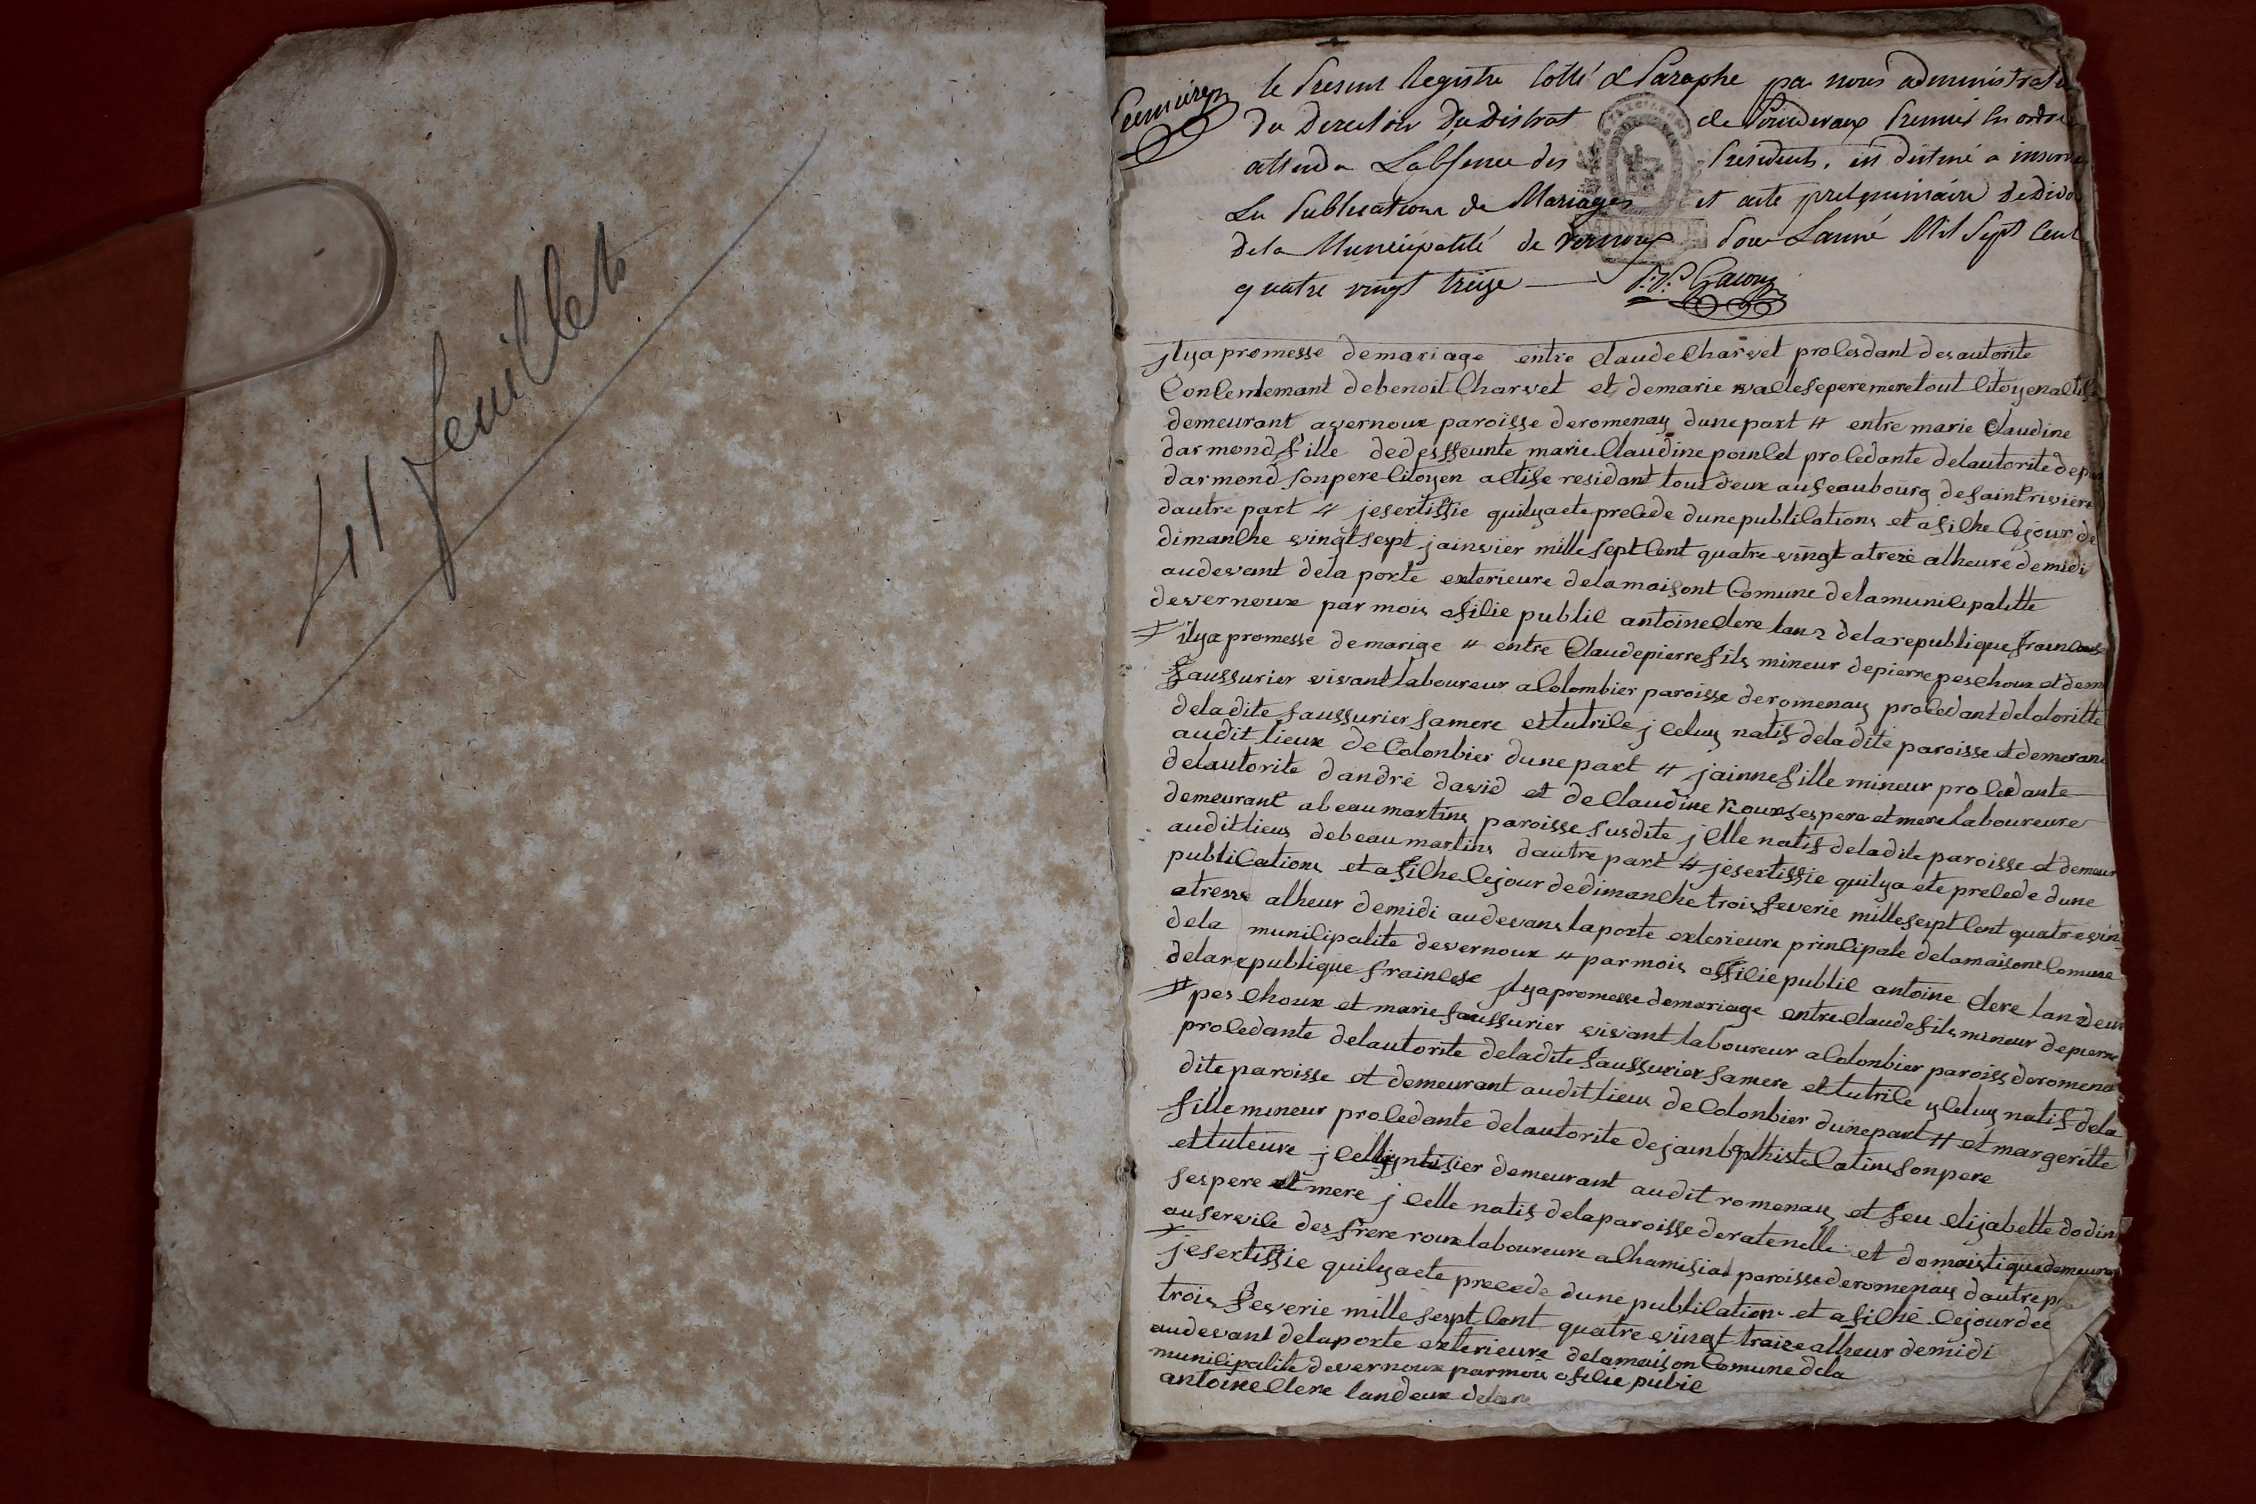 41 feuillets
premier
le present Registre Cotté & Paraphe par nous administrateur
du Directoire Du District de premier en ordre
attendu Labsence des Presidents, est destiné a inserer
Les Publications de Mariages et acte preliminaire de Divor
de la Municipalité de vernoux pour Lanné Mil Sept Cent
quatre vingt treize
jlya promesse demariage entre Claude Charvet procedant des autorite
Consentemant debenoit Charvet et demarie valle sepere mere tout Citoyen actife
demeurant avernoux paroisse deromenay dune part 4 entre marie Claudine
darmond fille dedesseunte marie Claudine poncet procedante delautorite de
darmond sonpere Citoyen actife residant tout deux aufeaubourg desaint riviere
dautre part 4 jesertissie quilyaete precede dunepublications et afiche Cejour de
dimanche vingt sept jainvier mille sept Cent quatre vingt atreze alheure demidi
audevant dela porte exterieure delamaisont Comune delamunicipalitte
devernoux par mois ofilie publil antoine Clere lan 2 delarepublique frainlaise
ilya promesse demarige 4 entre Claudepierre fils mineur depierre peschoux et dem
faussurier vivant laboureur aColombier paroisse deromenay procedant delotoritte
deladite faussurier samere ettutrile jceluy natif deladite paroisse et demeran
audit lieux deColonbier dune part 4 jainne fille mineur procedante
delautorite dandré david et deClaudine Roux ses pere et mere laboureure
demeurant abeaumartins paroisse susdite jelle natif deladite paroisse et demeur
auditlieus debeaumartins dautre part 4 jesertissie quilya ete precede dune
publications et afilhe Cejour dedimanche trois feverie mille sept Cent quatre vin
atresse alheur demidi audevans laporte exterieure principale delamaisont Comune
dela municipalite devernoux 4 parmois offilie publil antoine Clere lan 2 deux
delarepublique frainlese jlyapromesse demariage entre Claude fils mineur depierre
peschoux et marie faussurier vivant laboureur aColonbier paroiss deromena
procedante delautorite deladite faussurier samere ettutrile yleluy natif dela
dite paroisse et demeurant auditlieus deColonbier dunepart 4 et margeritte
fille mineur procedante delautorite dejainbapthiste Catin sonpere
ettuteure demeurant audit romenay et feu elizabette dodin
sespere et mere jcelle natif delaparoisse deratenelle et domaistique demeuran
auservile des frere roux laboureure paroisse deromenay dautre p
jesertissie quilyaete precede dune publilation et afiché Cejour de
trois feverie mille sept Cent quatre vingt traize alheur demidi
audevant delaporte exterieure delamaison Comune dela
municipalite devernoux parmois ofilie publie
antoine Clere landeux delare